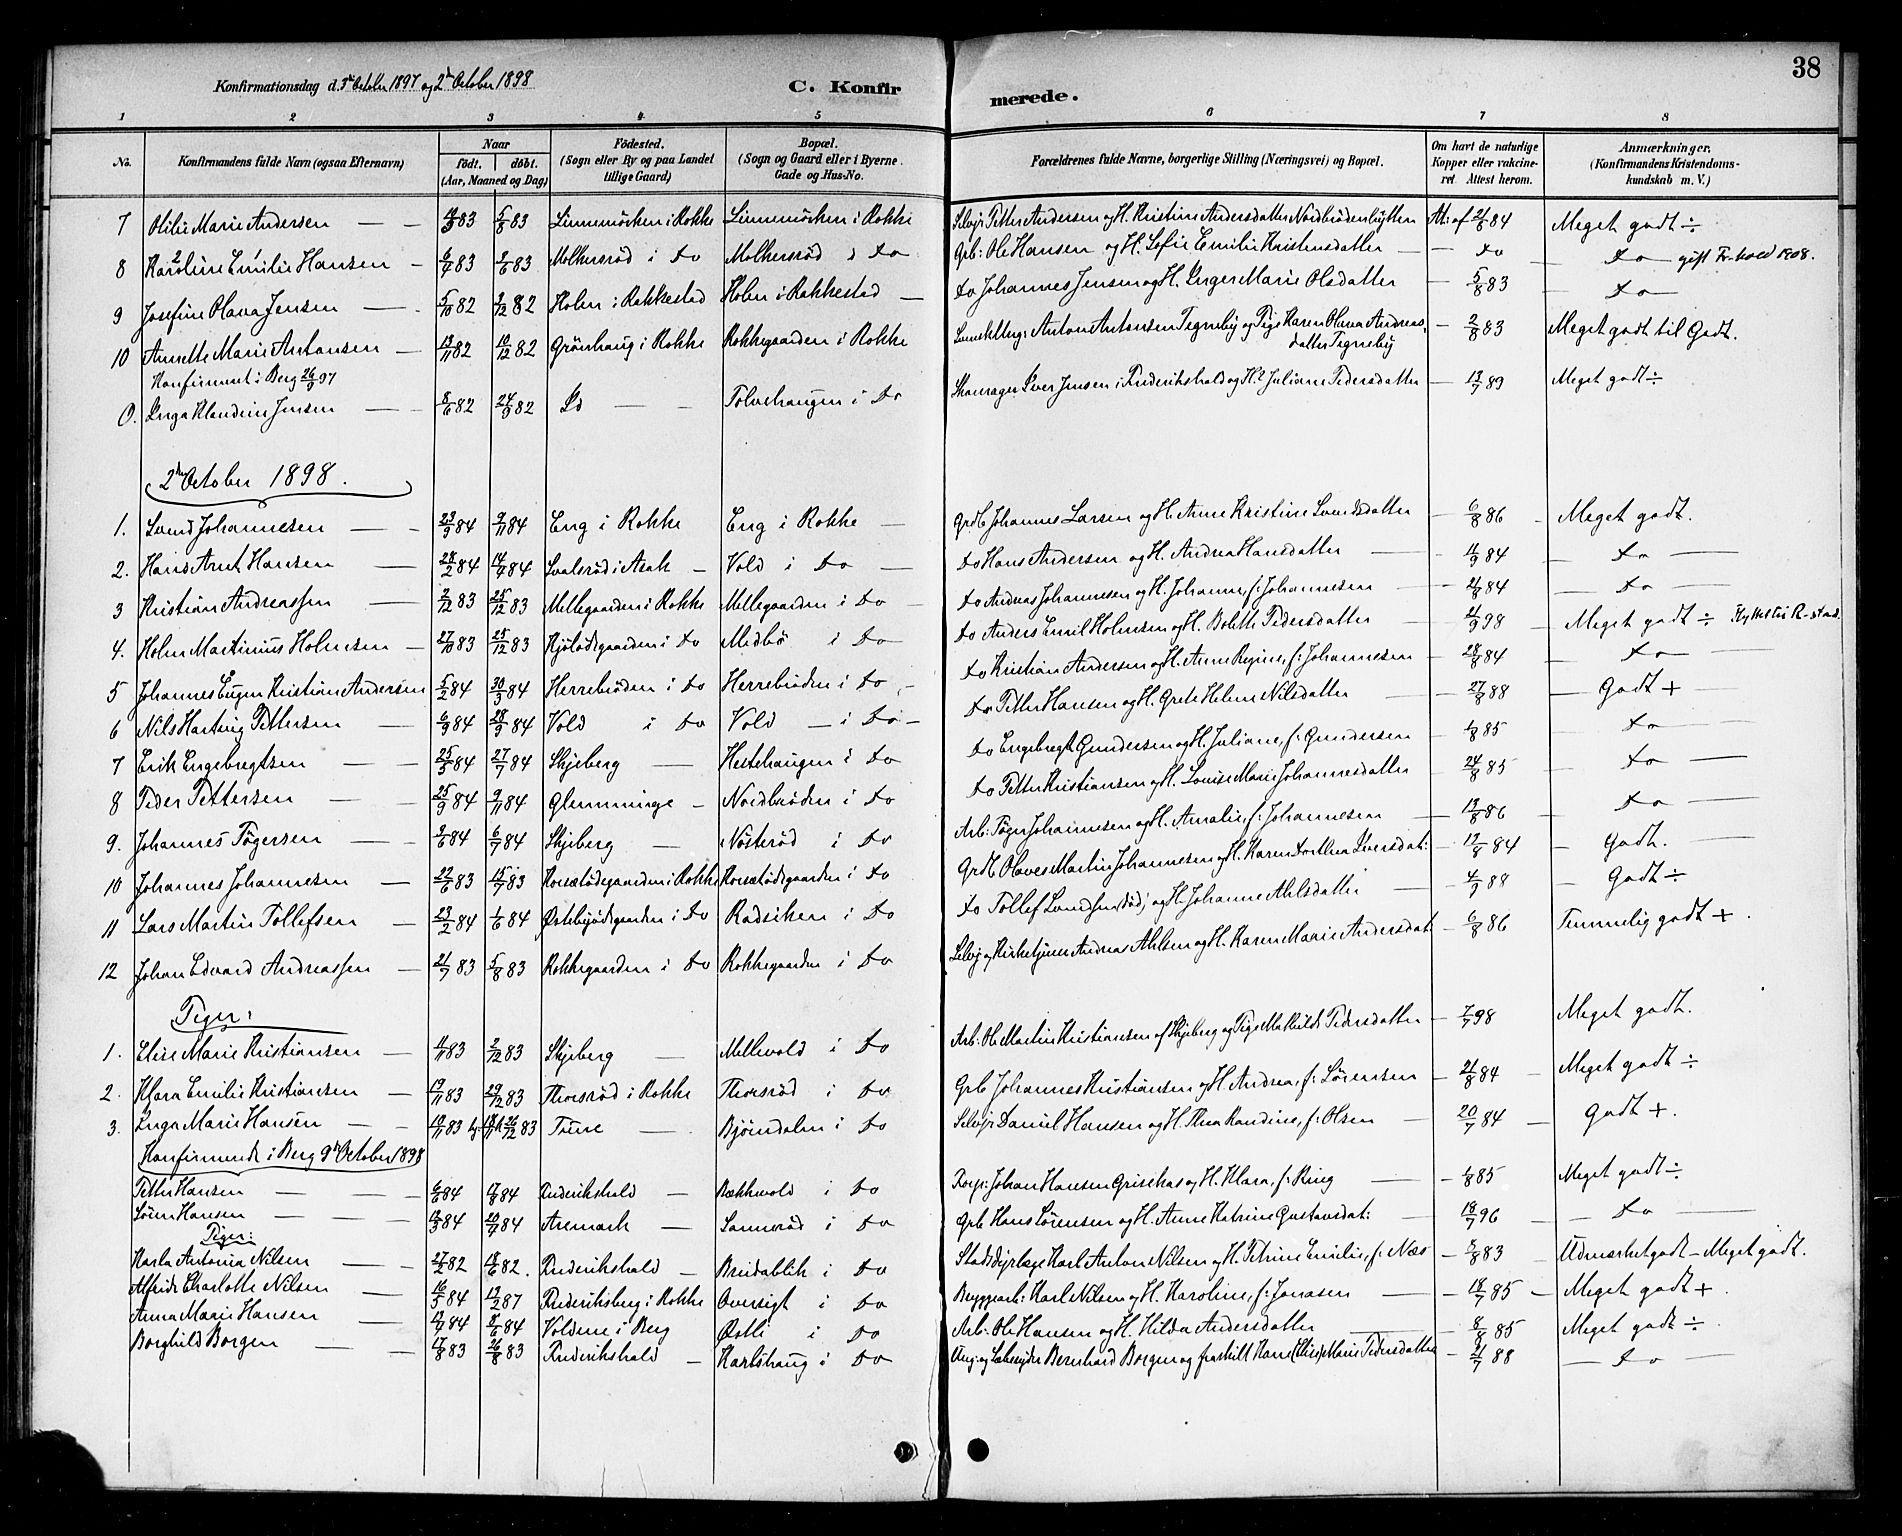 38
Konfirmationsdag d. 3die October 1897 og 2den October 1898 C. Konfirmerede.
1 2 3 4 5 6 7 8
No. Konfirmandens fulde Navn (ogsaa Efternavn) Naar født. døbt. (Aar, Maaned og Dag) Födested. (Sogn eller By og paa Landet tillige Gaard) Bopæl. (Sogn og Gaard eller i Byerne Gade og Hus-No. Forældrenes fulde Navne, borgerlige Stilling (Næringsvei) og Bopæl. Om havt de naturlige Kopper eller vakcineret. Attest herom. Anmærkninger. (Konfirmandens Kristendomskundskab m. V.)
7 Otilie Marie Andersen 83 5/8 83 Linnemörken i Rokke Linnemörken i Rokke Selvejr Petter Andersen og H. Kristine Andersdatter Nordbrödenhytten At: af 21/8 84 Meget godt ÷
8 Karoline Emilie Hansen 6/4 83 3/6 83 Molkersröd i Do Molkersröd i Do Grb: Ole Hansen og H. Sofie Emilie Kristensdatter Do Do gift Fr.hald 1908.
9 Josefine Olava Jensen 5/10 82 3/12 82 Holen i Rakkestad Holen i Rakkestad Do Johannes Jensen og H. Inger Marie Olsdatter 5/8 83 Do
10 Annette Marie Antonsen 19/11 82 10/12 82 Grönhaug i Rokke Rokkegaarden i Rokke Anton Antonsen Tegneby og Pige Karen Olava Andreasdatter Tegneby 2/8 83 Meget godt til Godt.
Konfirmeret i Berg 26/9 97
0. Inga Klaudine Jensen 8/6 82 24/9 82 Do Tolvehaugen i Do Skomager Iver Jensen i Frederikshald og H. Juliane Pedersdatter 13/7 89 Meget godt ÷
2den October 1898.
1. Svend Johannesen 23/9 84 9/11 84 Eng i Rokke Eng i Rokke Grdb Johannes Larsen og H. Anne Kristine Svendsdatter 6/8 86 Meget godt.
2. Hans Arnt Hansen 28/2 84 14/4 84 Svalerød i Asak Vold i Do Do Hans Andersen og H. Andrea Hansdatter 11/9 84 Do
3 Kristian Andreassen 2/12 83 25/12 83 Mellegaarden i Rokke Mellegaarden i Do Do Andreas Johannesen og H. Johanne, f: Johannesen 21/8 84 Do
4. Holm Martinius Holmsen 27/10 83 25/12 83 Kjölödegaarden i Do Medbö i Do Do Anders Emil Holmsen og H. Bolette Pedersdatter 21/9 98 Meget godt ÷
5 Johannes Eugen Kristian Andersen 5/2 84 30/3 84 Herrebröden i Do Herrebröden i Do Do Kristian Andersen og H. Anne Regine, f: Johannesen 28/8 84 Do
6 Nils Hartvig Pettersen 6/9 84 28/9 84 Vold i Do Vold i Do Do Petter Hansen og H. Grete Helene Nilsdatter 27/8 88 Godt +
7 Erik Engebregtsen 25/5 84 27/7 84 Skjeberg Hestehaugen i Do Do Engebregt Gundersen og H. Juliane, f: Gundersen 1/8 85 Do
8 Peder Pettersen 25/9 84 9/11 84 Glemminge Nordbröden i Do Do Petter Kristiansen og H. Lovise Marie Johannesdatter 24/8 85 Do
9. Johannes Tögersen 2/6 84 6/7 84 Skjeberg Nösteröd i Do Arb: Töger Johannesen og H. Amalie, f: Johannesen 13/8 86 Do
10 Johannes Johannesen 22/6 83 15/7 83 Korsetödegaarden i Rokke Korsetödegaarden i Do Grdb Olaves Martin Johannesen og H. Karen Dorthea Iversdat: 13/8 84 Godt.
11 Lars Martin Tollefsen 23/2 84 1/6 84 Östebyödegaarden i Do Radsiken i Do Do Tollef Svendsen (död) og H. Johanne Ahlsdatter 4/9 88 Godt ÷
12 Johan Edvard Andreassen 21/7 83 5/8 83 Rokkegaarden i Do Rokkegaarden i Do Selvejr Kirketjener Andreas Ahlsen og H. Karen Marie Andersdat: 6/8 86 Temmelig godt +
Piger:
1. Elise Marie Kristiansen 11/11 83 2/12 83 Skjeberg Mellevold i Do Arb. Ole Martin Kristiansen af Skjeberg og Pige Mathilde Pedersdatter 7/7 98 Meget godt.
2. Klara Emilie Kristiansen 19/11 83 29/12 83 Thorsröd i Rokke Thorsröd i Do Grb Johannes Kristiansen og H. Andrea, f: Sörensen 21/8 84 Meget godt ÷
3. Inga Marie Hansen 10/11 83 26/12 83 Tune Björndalen i Do Selvejr Daniel Hansen og H. Thea Randine, f: Olsen 20/7 84 Godt +.
Konfirmerede i Berg 9de October 1898
Petter Hansen 6/6 84 17/8 84 Frederikshald Bækkevold i Do Johan Hansen Grisehas og H. Klara, f: Ring 1/8 85 Meget godt ÷
Sören Hansen 12/3 84 20/4 84 Aremark Sanneröd i Do Grb Hans Sörensen og H. Anne Katrine Gustavsdat: 18/7 96 Do
Piger:
Karla Antonia Nilsen 27/2 82 18/6 82. Frederikshald Breidablik i Do Stadsdyrlæge Karl Anton Nilsen og H. Petrine Emilie, f: Næs 5/8 83 Udmærket godt – Meget godt.
Alfride Charlotte Nilsen 16/5 84 13/2 87 Frederiksberg i Rokke Oversigt i Do Bryggearb: Karl Nilsen og H. Karoline, f: Jonasen 18/7 85 Meget godt +.
Anna Marie Hansen 84 8/6 84 Voldene i Berg Östli i Do Arb: Ole Hansen og H. Hilda Andersdatter 8/8 85 Meget godt ÷.
Borghild Borgen 17/8 83 26/8 83 Frederikshald Karlshaug i Do Bernhard Borgen og fraskilt Kone (Elise) Marie Pedersdatter 21/7 88 Do